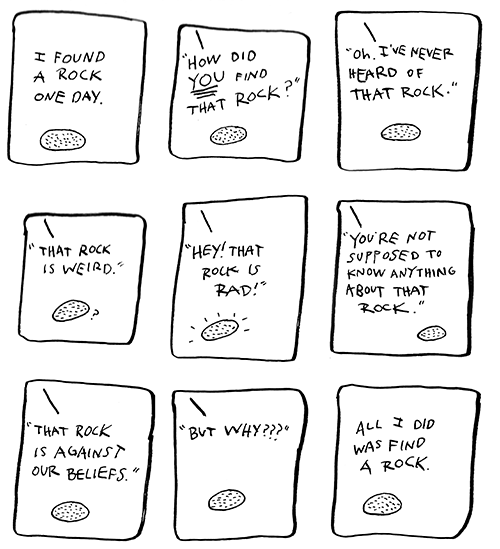 I FOUND
A ROCK
ONE DAY.
"HOW DID
YOU FIND
THAT ROCK?"
"OH. I'VE NEVER
HEARD OF
THAT ROCK."
"THAT ROCK
IS WEIRD."
?
"HEY! THAT
ROCK IS
RAD!"
"YOU'RE NOT
SUPPOSED TO
KNOW ANYTHING
ABOUT THAT
ROCK."
"THAT ROCK
IS AGAINST
OUR BELIEFS."
"BUT WHY???"
ALL I DID
WAS FIND
A ROCK.